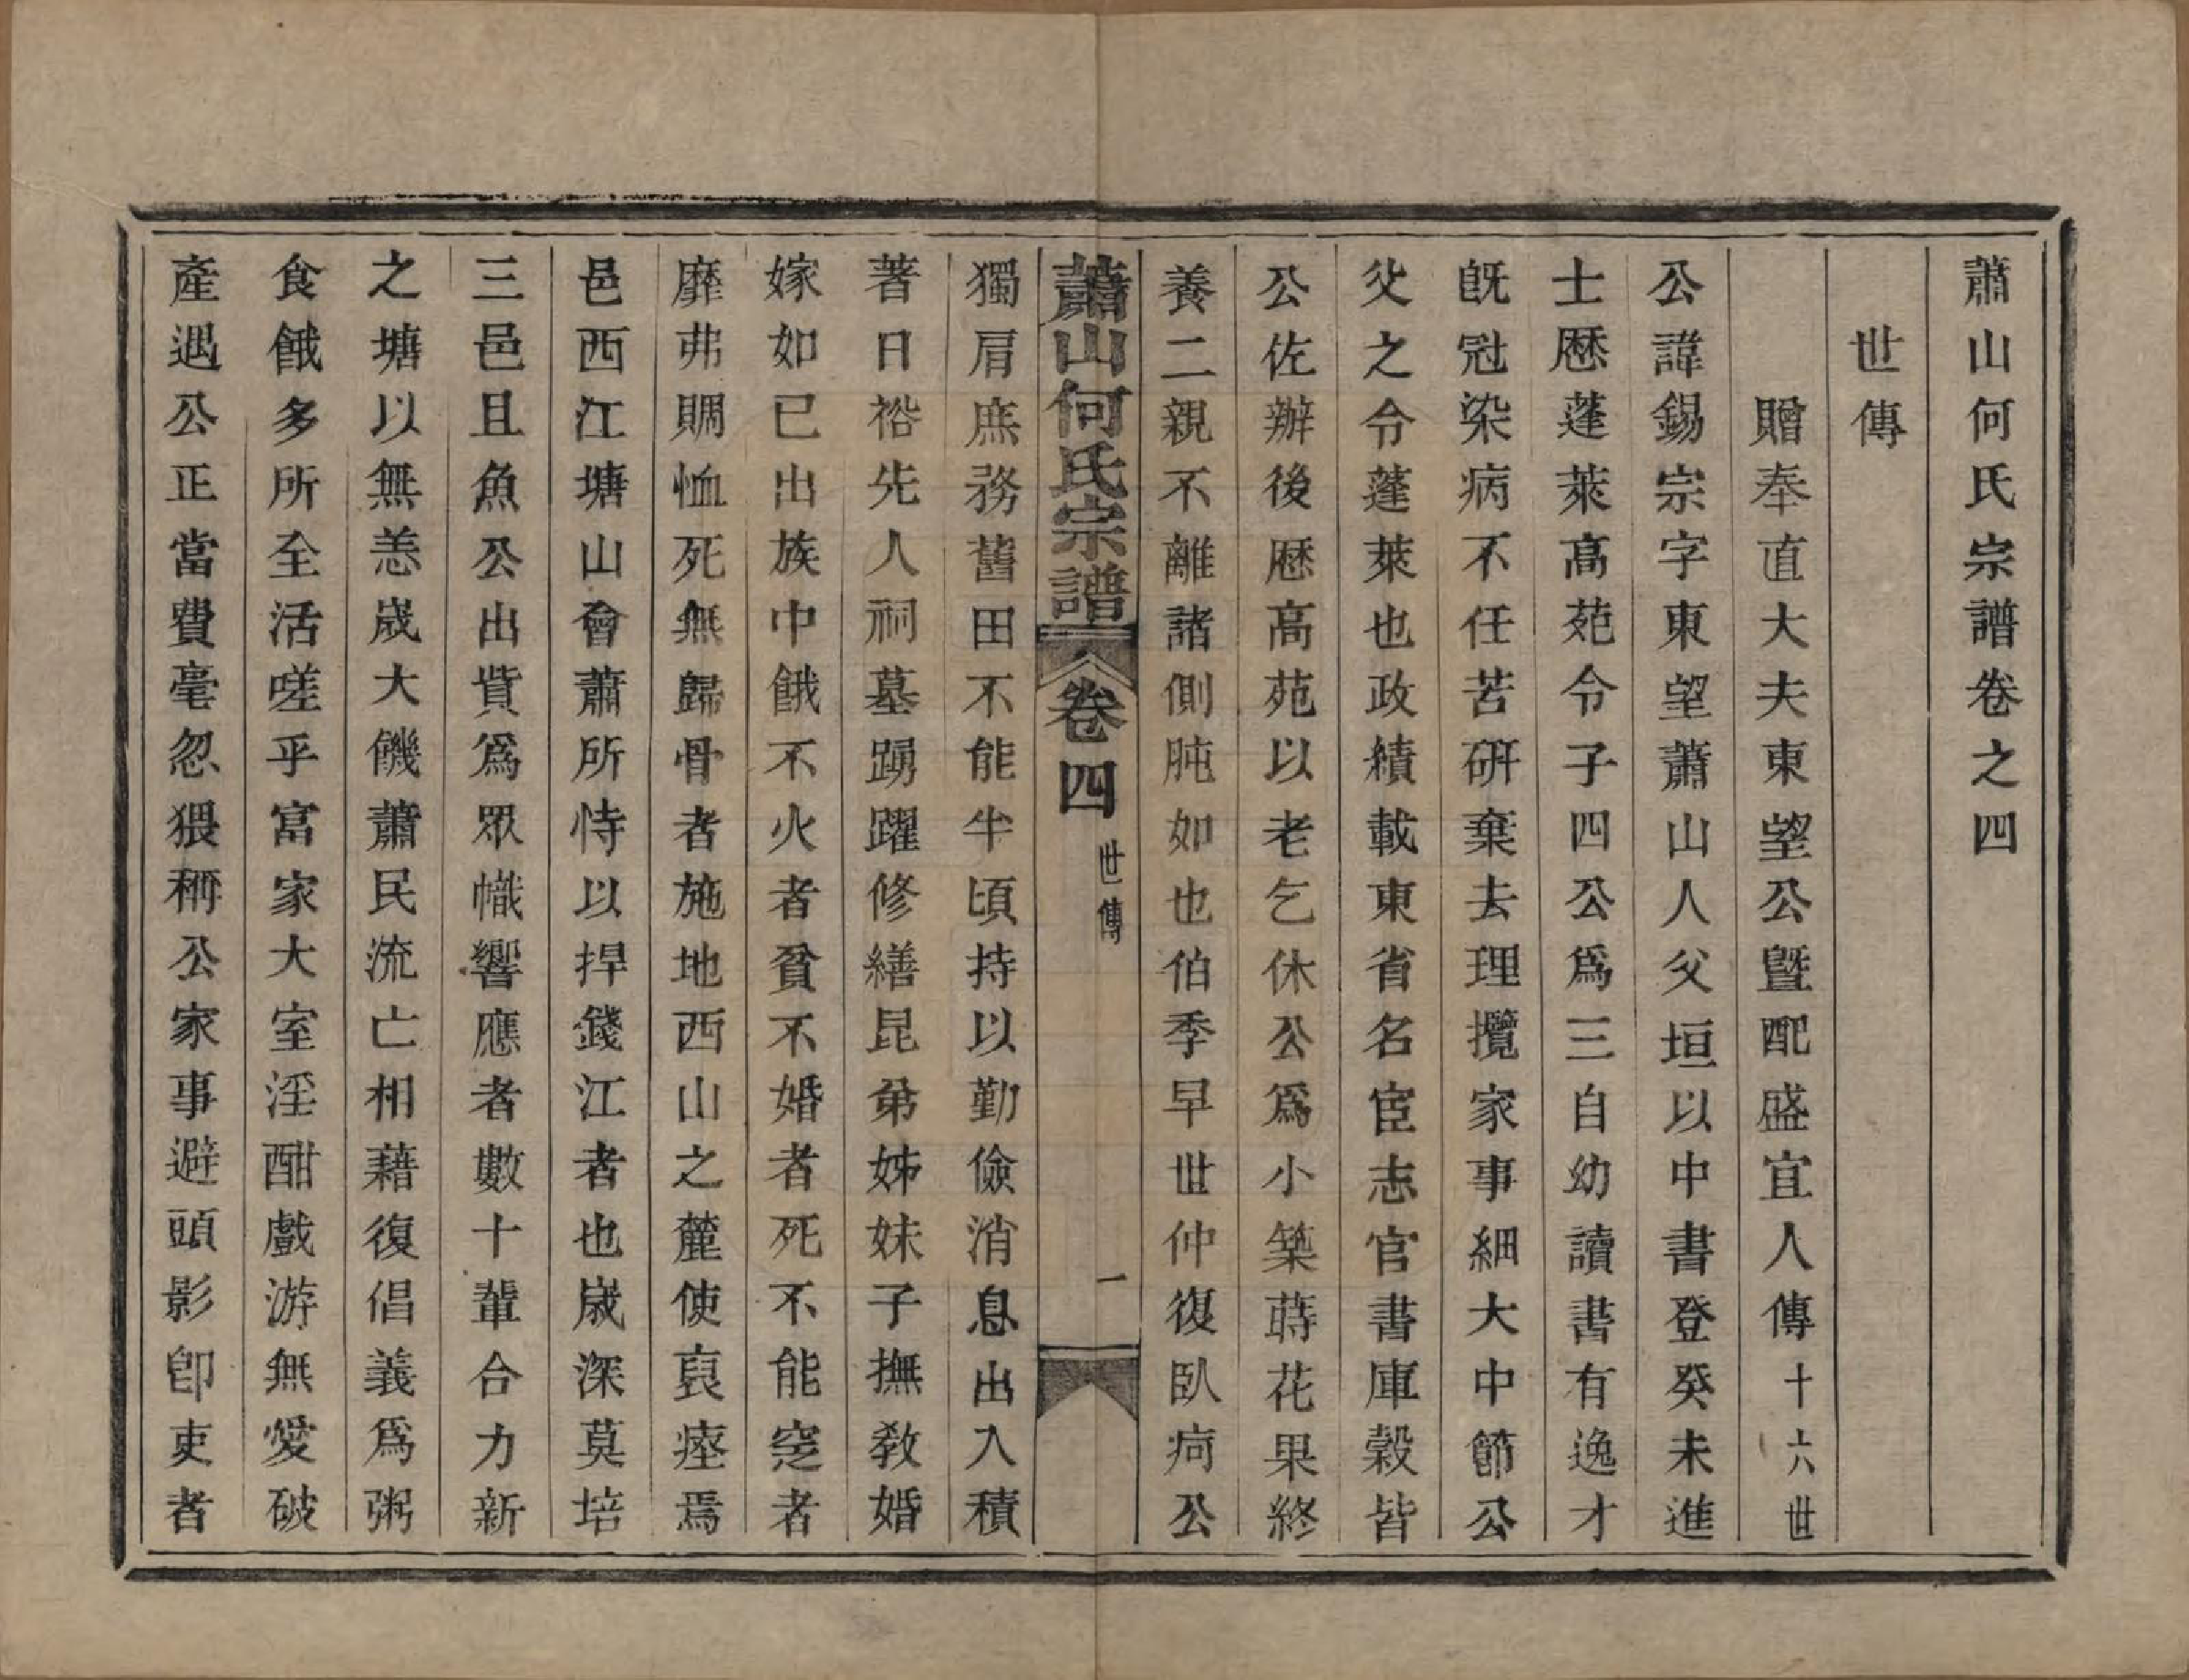 蕭山何氏宗譜卷之四
世傳
贈奉直大夫東望公曁配盛宜人傳十六世
公諱錫宗字東望蕭山人父垣以中書登癸未進
士歷蓬萊高苑令子四公爲三自幼讀書有逸才
旣冠染病不任苦硏棄去理攬家事細大中節公
父之令蓬萊也政績載東省名宦志官書庫穀皆
公佐辦後歷高苑以老乞休公爲小築蒔花果終
養二親不離諸側肫如也伯季早世仲復臥疴公
蕭山何氏宗譜 卷四 世傳 一
獨肩庶務舊田不能半頃持以勤儉消息出入積
著日裕先人祠墓踴躍修繕昆弟姊妹子撫敎婚
嫁如已出族中餓不火者貧不婚者死不能窆者
靡弗賙恤死無歸骨者施地西山之麓使裒瘞焉
邑西江塘山會蕭所恃以捍錢江者也歲深莫培
三邑且魚公出貲爲眾幟響應者數十輩合力新
之塘以無恙歲大饑蕭民流亡相藉復倡義爲粥
食餓多所全活嗟乎富家大室淫酣戲游無愛破
產遇公正當費毫忽猥稱公家事避頭影卽吏者